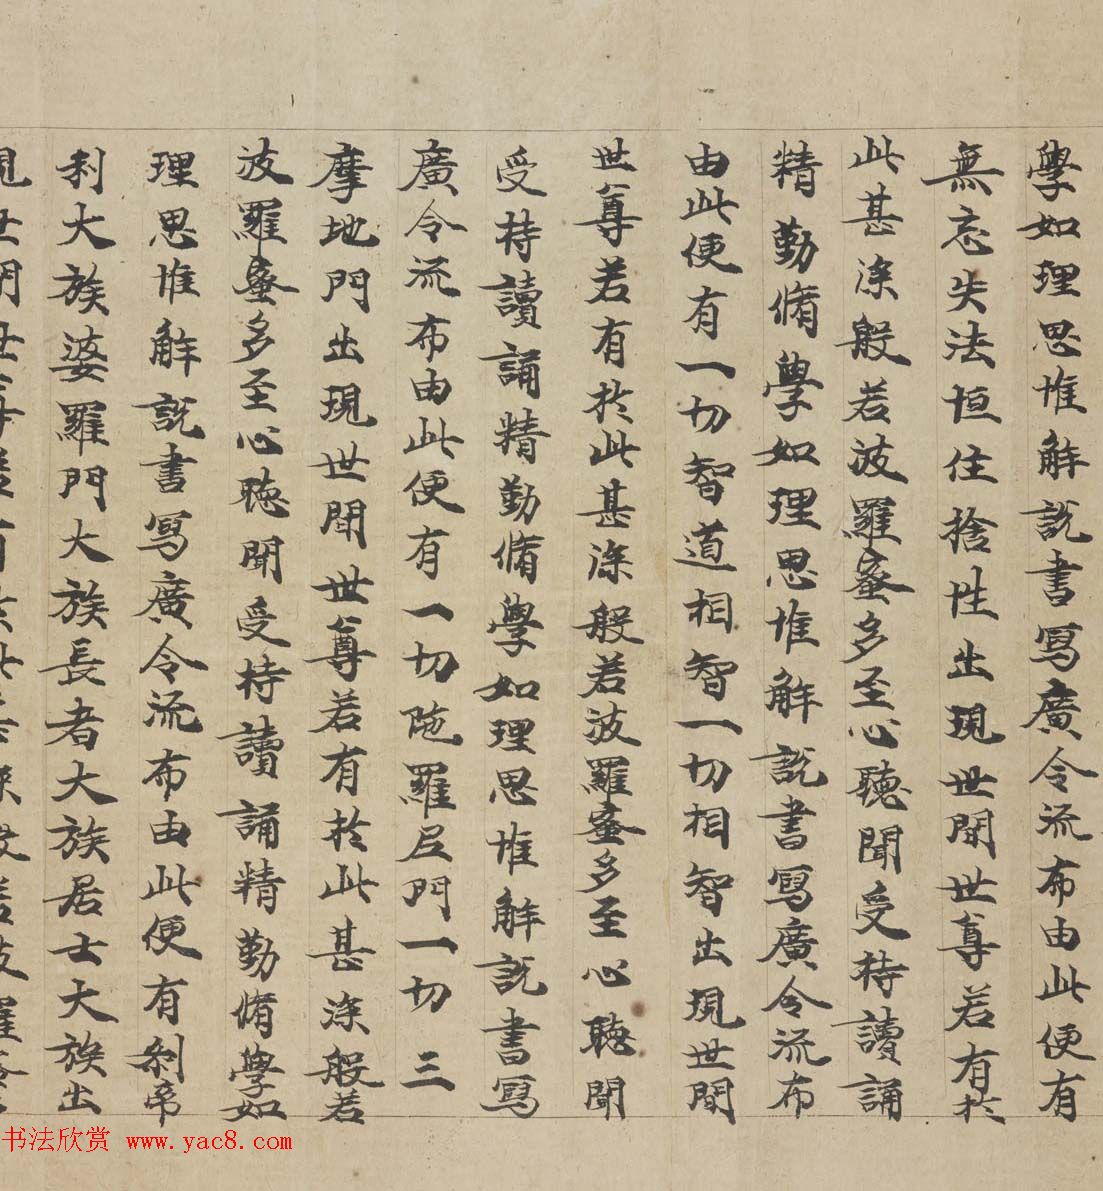 學如理思惟解說書寫廣令流布由此便有
無忘失法恒住捨性出現世間世尊若有於
此甚深般若波羅蜜多至心聽聞受持讀誦
精勤脩學如理思惟解說書寫廣令流布
由此便有一切智道相智一切相智出現世間
世尊若有於此甚深般若波羅蜜多至心聽聞
受持讀誦精勤脩學如理思惟解說書寫
廣令流布由此便有一切陁羅尼門一切三
摩地門出現世間世尊若有於此甚深般若
波羅蜜多至心聽聞受持讀誦精勤脩學如
理思惟解說書寫廣令流布由此便有剎帝
利大族婆羅門大族長者大族居士大族出
現世間世尊若有於此甚深般若波羅蜜
书法欣赏 www.yac8.com